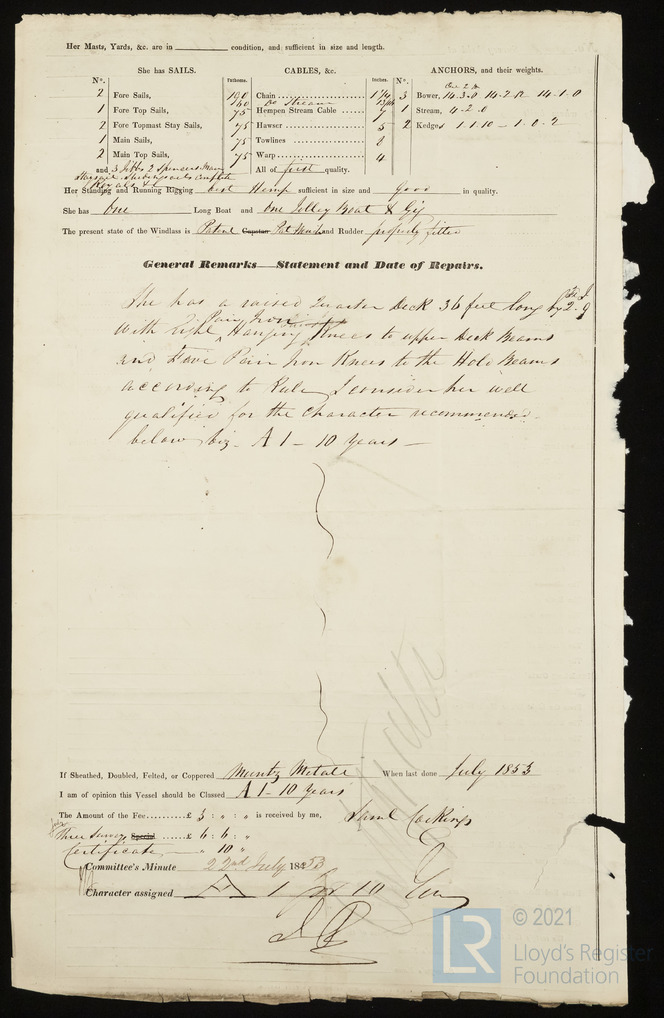 Her Masts, Yards, &c. are in condition, and sufficient in size and length.
She has SAILS. CABLES, &c. ANCHORS, and their weights.
N°. Fathoms. Inches. N°.
2 Fore Sails, Chain 3 Bower, 14.3.0 14.2.12 14.1.0
1 Fore Top Sails, 75 Hempen Stream Cable 7 1 Stream, 4.2.0
2 Fore Topmast Stay Sails, 75 Hawser 5 2 Kedges 1.1.10 - 1.0.2
1 Main Sails, 75 Towlines
2 Main Top Sails, 75 Warp 4
and 3 Jibbs 2 Spencers Main All of first quality.
Staysail Studdingsails complete
Royals &c
Her Standing and Running Rigging best Hemp sufficient in size and good in quality.
She has One Long Boat and One Jolley Boat & Gig
The present state of the Windlass is Patent Capstan and Rudder properly fitted
General Remarks—Statement and Date of Repairs.
She has a raised Quarter Deck 36 feet long by 2.9
With Eight Pair Iron Hanging Knees to upper Deck Beams
and Five Pair Iron Knees to the Hold Beams
according to Rule, I consider her well
qualified for the Character recommended
below viz - A 1 - 10 Years -
If Sheathed, Doubled, Felted, or Coppered Muntz Metal When last done July 1853
I am of opinion this Vessel should be Classed A 1 - 10 years
The Amount of the Fee......£ 3 : " : " is received by me, Saml Cockings
Three Surveys Special ......£ 6 : 6 : "
Certificate " 10 "
Committee's Minute 22nd July 1853
Character assigned A 1 for 10 Years
© 2021
LR
Lloyd's Register
Foundation